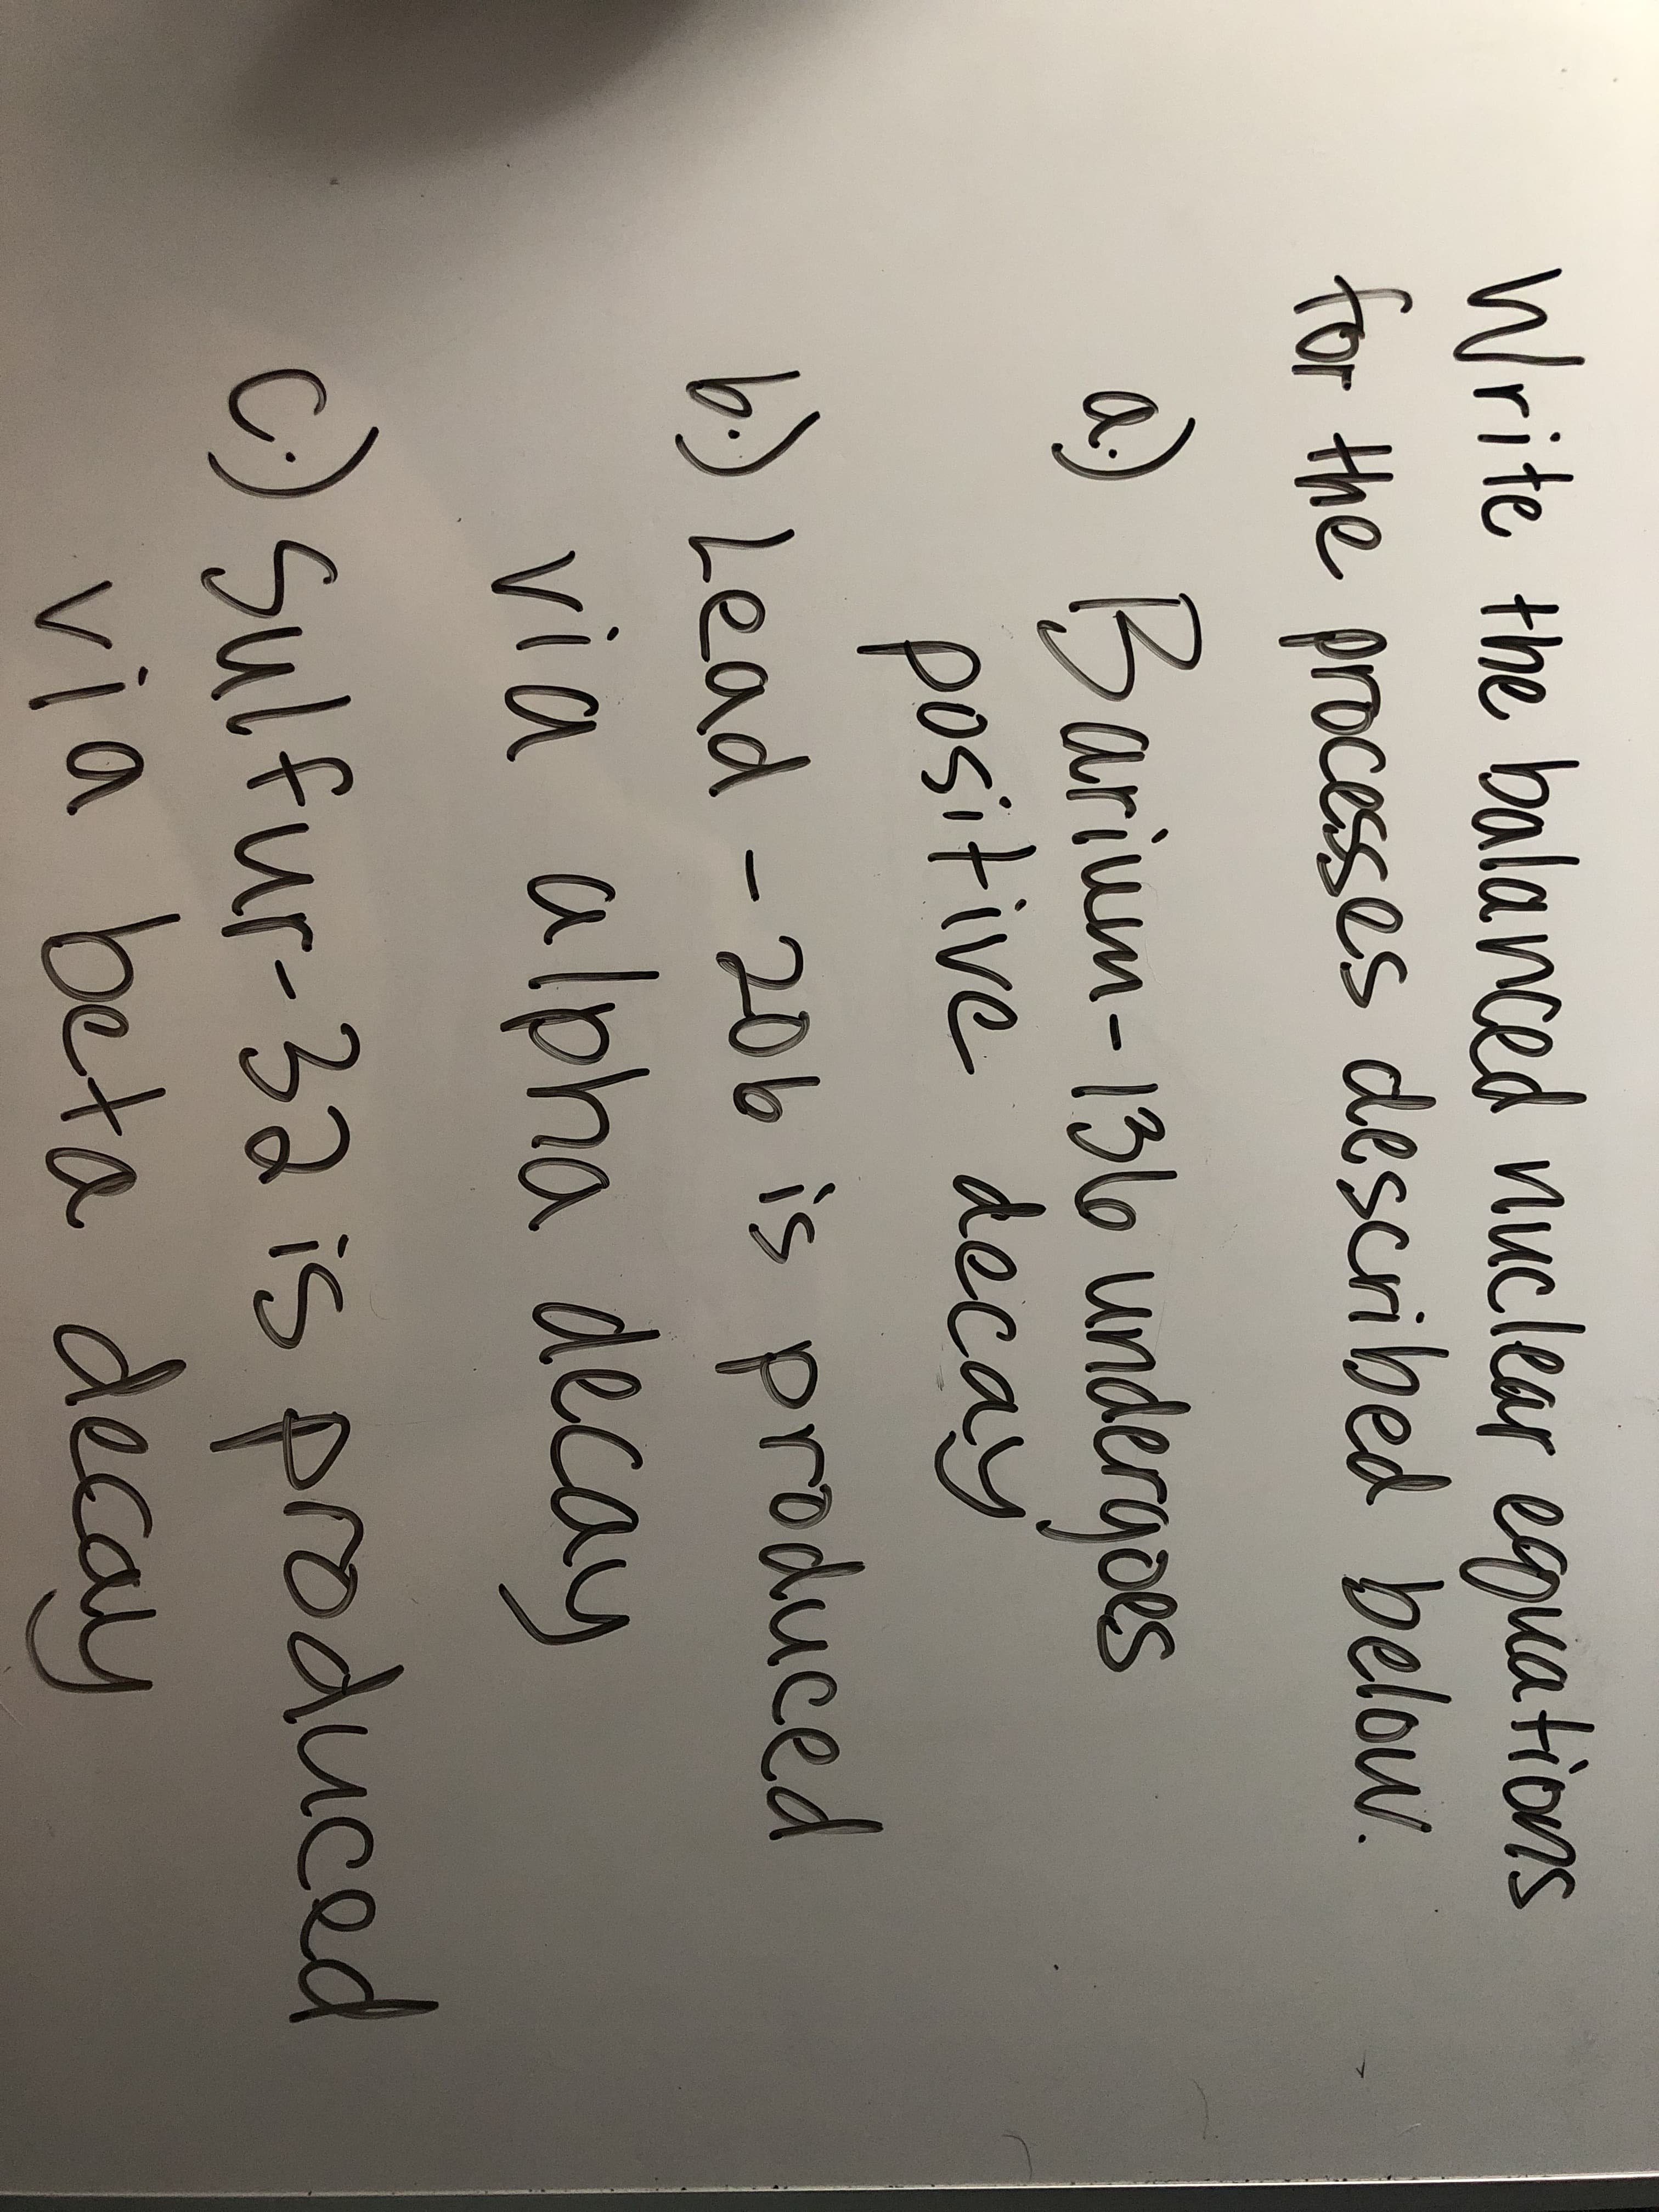 Write the balanced nuclear equations
for the processes described below.
a.) Barium-136 undergoes
positive decay
b.) Lead - 206 is produced
via alpha decay
c.) Sulfur-32 is produced
via beta decay